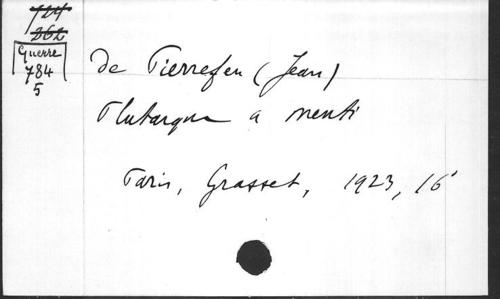 724
262
Guerre
784
5
de Pierrefeu (Jean)
Plutarque a menti
Paris, Grasset, 1923, 16°